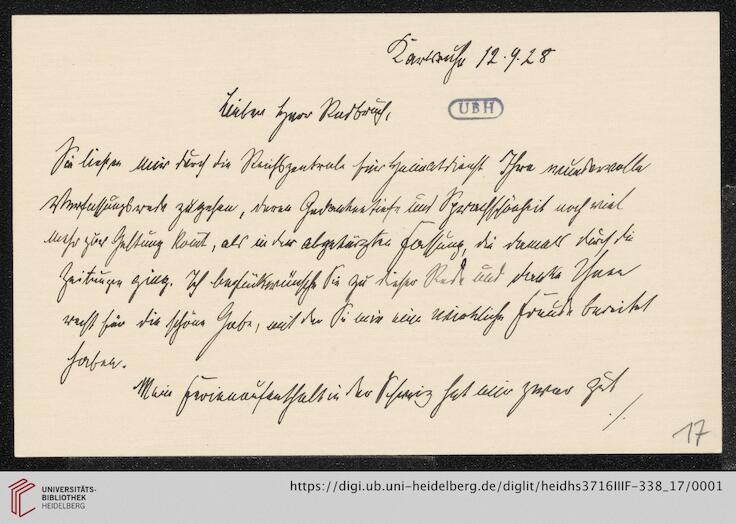 Karlsruhe 12.9.28
UBH
Lieber Herr Radbruch,
Sie ließen mir durch die Reichszentrale für Heimatdienst Ihre wundervolle
Verfassungsrede zugehen, deren Gedankentiefe und Sprachschönheit noch viel
mehr zur Geltung komt, als in der abgekürzten Fassung, die damals durch die
Zeitungen ging. Ich beglückwünsche Sie zu dieser Rede und danke Ihnen
recht für die schöne Gabe, mit der Sie mir eine wirkliche Freude bereitet
haben.
Mein Ferienaufenthalt in der Schweiz hat mir zwar gut
./.
17
UNIVERSITÄTS-
BIBLIOTHEK
HEIDELBERG
https://digi.ub.uni-heidelberg.de/diglit/heidhs3716IIIF-338_17/0001